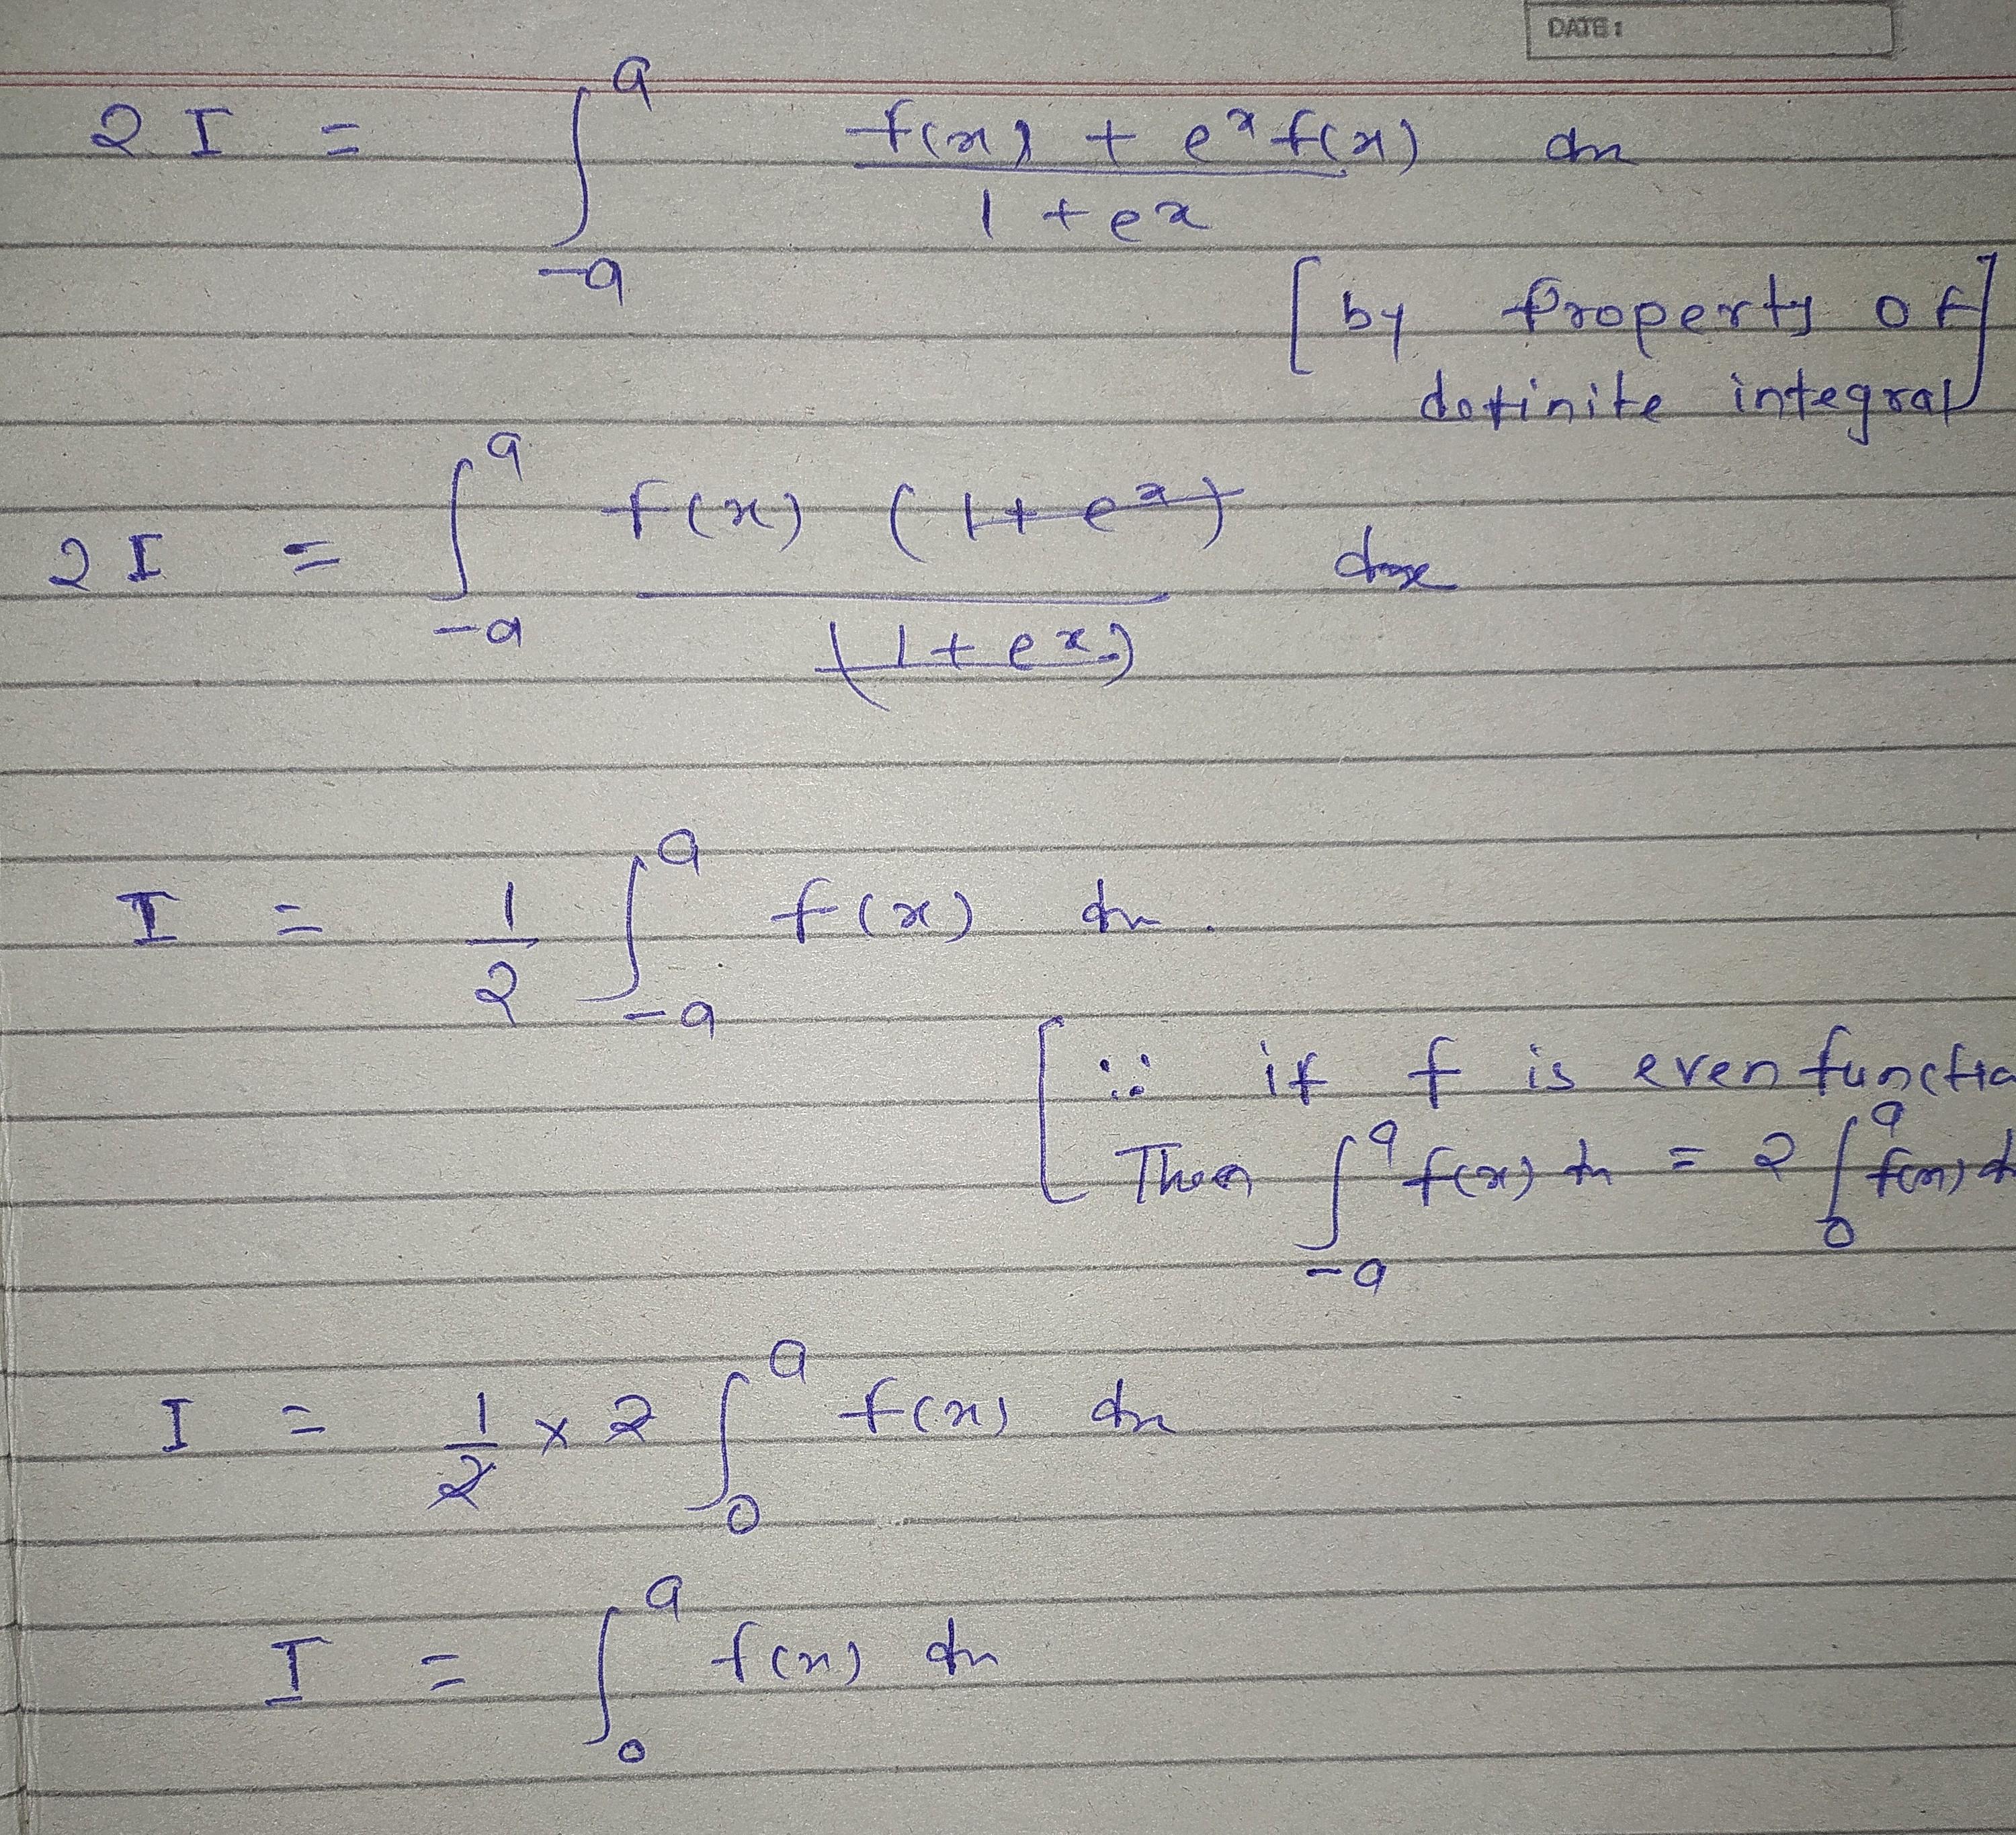 DATE:
2I = ∫_{-a}^{a} \frac{f(x) + e^x f(x)}{1 + e^x} dx
[by Property of
definite integral]
2I = ∫_{-a}^{a} \frac{f(x) (1 + e^x)}{(1 + e^x)} dx
I = \frac{1}{2} ∫_{-a}^{a} f(x) dx.
[∵ if f is even functio
Then ∫_{-a}^{a} f(x) dx = 2 ∫_{0}^{a} f(x) d
I = \frac{1}{2} × 2 ∫_{0}^{a} f(x) dx
I = ∫_{0}^{a} f(x) dx